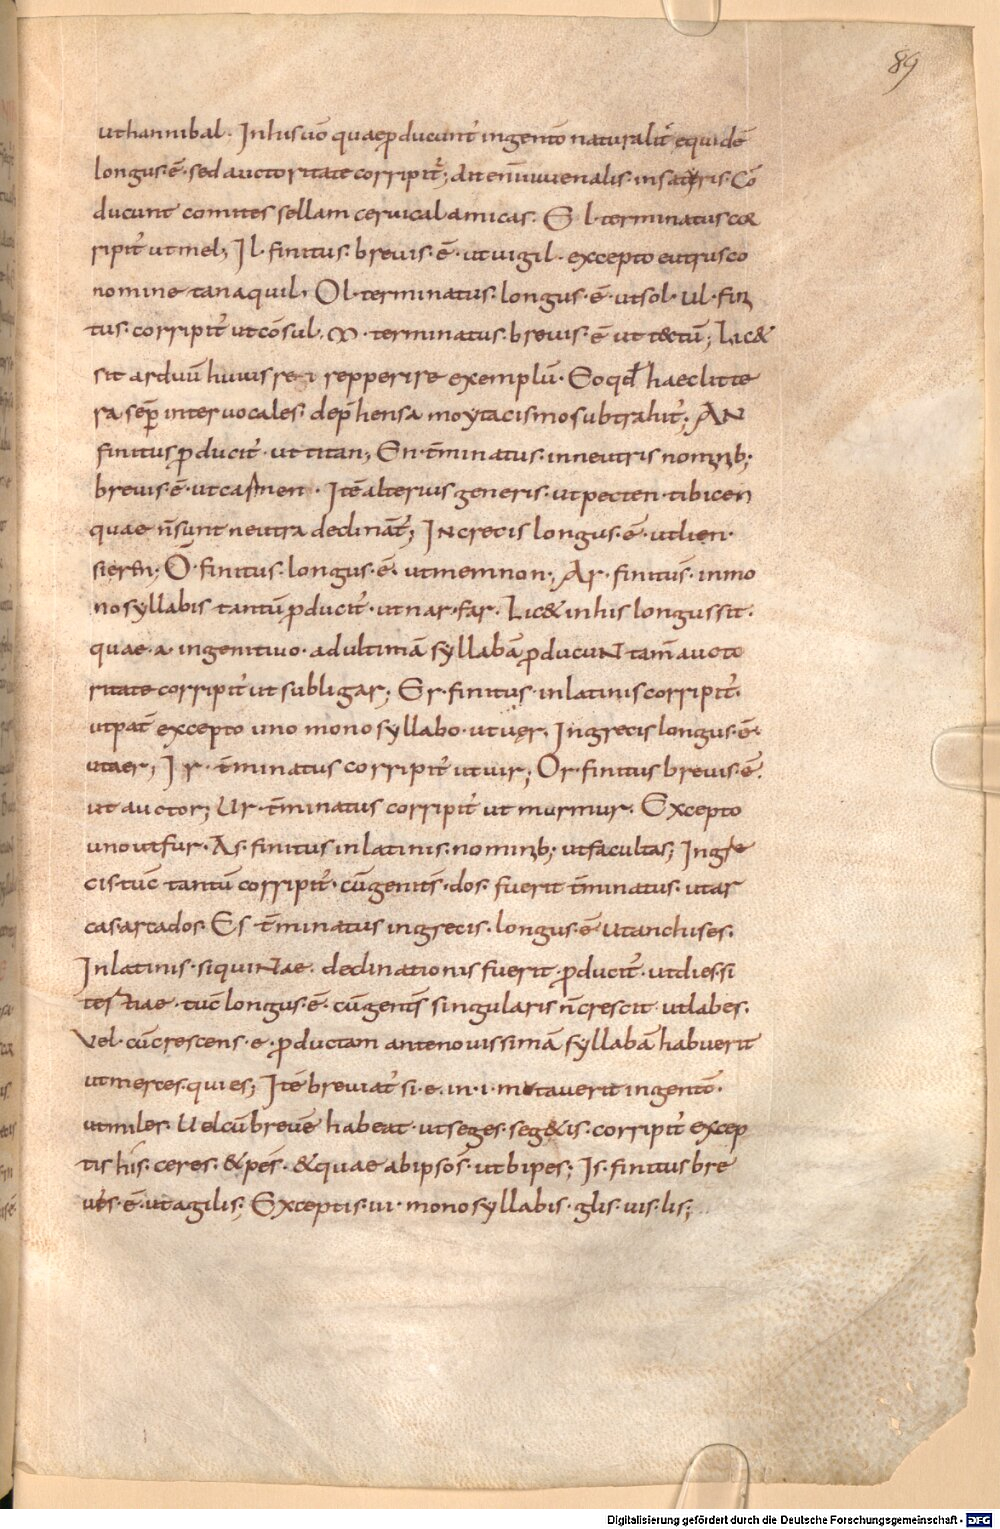 89
ut hannibal. In his uō quae ꝓducunt' in genitō naturalit' equidē
longus·ē· sed auctoritate corripit'; At tēn iuuenalis· in satyris· Cō
ducunt comites sellam ceruical amicas. El· terminatus cor
ripit' ut mel; Il· finitus· breuis·ē· ut uigil· excepto etrusco
nomine tanaquil· Ol· terminatus· longus·ē· ut sol· Ul· fini
tus· corripit' ut cōsul. M· terminatus· breuis·ē ut tectū; Lic&
sit arduū huius rei repperire exemplū· Eo qđ haec litte
ra semꝑ inter uocales· dep̄hensa moytacismo subtrahit'; AN
finitus ꝓducit' ut titan; En· t̄minatus· in neutris nominib;
breuis·ē· ut carmen· Itē alterius generis· ut pecten· tibicen
quae n̄ sunt neutra declinat'; IN grecis longus·ē· ut lien·
siren· Ō finitus· longus·ē· ut memnon; Ar· finitus· in mo
nosyllabis tantū ꝓducit'· ut nar· far· Lic& in his longus sit·
quae·a· in genitiuo· ad ultimā syllabā ꝓducuNt tam̄ aucto
ritate corripit' ut subligar; Er· finitus· in latinis corripit'·
ut pat' excepto uno monosyllabo· ut uer· In grecis longus·ē·
ut aer; Ir· t̄minatus corripit' ut uir; Or· finitus breuis·ē·
ut auctor; Ur· t̄minatus corripit' ut murmur· Excepto
uno ut fur· As· finitus in latinis· nominib; ut facultas; In gre
cis· tuc̄ tantū corripit'· cū genit's· dos· fuerit t̄minatus· ut ar
cas· arcados· Es t̄minatus in grecis· longus·ē ut anchises·
In latinis· si quiNtae· declinationis fuerit· ꝓducit'· ut dies· si
tertiae· tuc̄ longus·ē· cū genit's singularis n̄ crescit· ut labes·
Vel· cū crescens·e· ꝓductam ante nouissimā syllabā habuerit
ut merces· quies; Itē breuiat' si·e· in·i· mutauerit in genitō·
ut miles· Uel cū breuē habeat· ut seges· seg&is· corripit' excep
tis his· ceres· & pes· & quae ab ipso s̄· ut bipes; Is· finitus bre
uis·ē· ut agilis; Exceptis·iii· monosyllabis· glis· uis· lis;
Digitalisierung gefördert durch die Deutsche Forschungsgemeinschaft - DFG